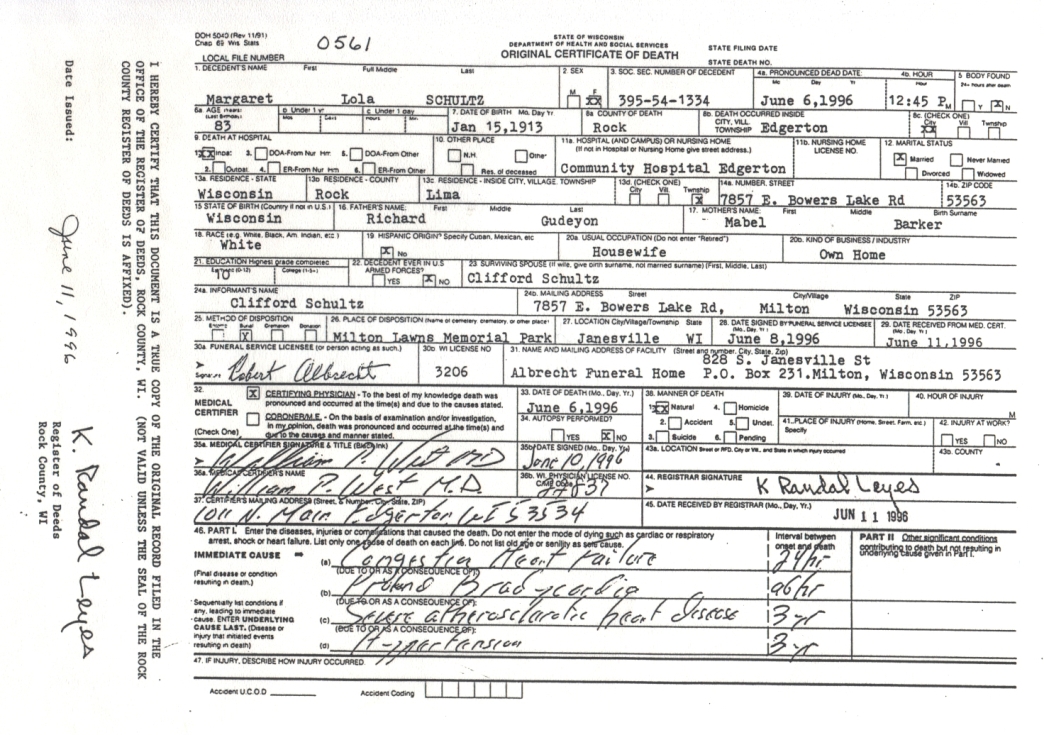 DOH 5040 (Rev 11/91)
Chap 69 Wis Stats
0561
STATE OF WISCONSIN
DEPARTMENT OF HEALTH AND SOCIAL SERVICES
ORIGINAL CERTIFICATE OF DEATH
STATE FILING DATE
STATE DEATH NO.
LOCAL FILE NUMBER
1. DECEDENT'S NAME First Full Middle Last
Margaret Lola SCHULTZ
2. SEX
M F
XX
3. SOC. SEC. NUMBER OF DECEDENT
395-54-1334
4a. PRONOUNCED DEAD DATE:
Mo Day Yr
June 6,1996
4b. HOUR
12:45 P M
5 BODY FOUND
Y X N
6a AGE
83
b Under 1 yr
c Under 1 day
7. DATE OF BIRTH Mo. Day Yr.
Jan 15,1913
8a COUNTY OF DEATH
Rock
8b. DEATH OCCURRED INSIDE
CITY, VILL.
TOWNSHIP Edgerton
8c. (CHECK ONE)
City Vill Twnship
XX
9. DEATH AT HOSPITAL
3. DOA-From Nur Hm 5. DOA-From Other
2. Outpat. 4. ER-From Nur. Hm 6. ER-From Other
10. OTHER PLACE
N.H. Other
Res. of deceased
11a. HOSPITAL (AND CAMPUS) OR NURSING HOME
(If not in Hospital or Nursing Home give street address.)
Community Hospital Edgerton
11b. NURSING HOME
LICENSE NO.
12. MARITAL STATUS
X Married Never Married
Divorced Widowed
13a. RESIDENCE - STATE
Wisconsin
13b RESIDENCE - COUNTY
Rock
13c. RESIDENCE - INSIDE CITY, VILLAGE, TOWNSHIP
Lima
13d. (CHECK ONE)
City Vill. Twnship
X
14a. NUMBER, STREET
7857 E. Bowers Lake Rd
14b. ZIP CODE
53563
15 STATE OF BIRTH (Country if not in U.S.)
Wisconsin
16. FATHER'S NAME: First Middle Last
Richard Gudeyon
17. MOTHER'S NAME: First Middle Birth Surname
Mabel Barker
18. RACE (e.g. White, Black, Am. Indian, etc.)
White
19. HISPANIC ORIGIN? Specify Cuban, Mexican, etc
X No
20a. USUAL OCCUPATION (Do not enter "Retired")
Housewife
20b. KIND OF BUSINESS / INDUSTRY
Own Home
21. EDUCATION Highest grade completed
10
22. DECEDENT EVER IN U.S
ARMED FORCES?
YES X NO
23 SURVIVING SPOUSE (If wife, give birth surname, not married surname) (First, Middle, Last)
Clifford Schultz
24a. INFORMANT'S NAME
Clifford Schultz
24b. MAILING ADDRESS Street City/Village State ZIP
7857 E. Bowers Lake Rd, Milton Wisconsin 53563
25. METHOD OF DISPOSITION
Burial Cremation Donation
X
26. PLACE OF DISPOSITION (Name of cemetery, crematory, or other place)
Milton Lawns Memorial Park
27. LOCATION City/Village/Township State
Janesville WI
28. DATE SIGNED BY FUNERAL SERVICE LICENSEE
(Mo., Day, Yr.)
June 8,1996
29. DATE RECEIVED FROM MED. CERT.
(Mo., Day, Yr.)
June 11,1996
30a FUNERAL SERVICE LICENSEE (or person acting as such.)
Robert Albrecht
30b WI LICENSE NO
3206
31. NAME AND MAILING ADDRESS OF FACILITY (Street and number, City, State, Zip)
828 S. Janesville St
Albrecht Funeral Home P.O. Box 231.Milton, Wisconsin 53563
32.
MEDICAL
CERTIFIER
(Check One)
X CERTIFYING PHYSICIAN - To the best of my knowledge death was
pronounced and occurred at the time(s) and due to the causes stated.
CORONER/M.E. - On the basis of examination and/or investigation,
in my opinion, death was pronounced and occurred at the time(s) and
due to the causes and manner stated.
33. DATE OF DEATH (Mo., Day, Yr.)
June 6,1996
34. AUTOPSY PERFORMED?
YES X NO
38. MANNER OF DEATH
1. XX Natural 4. Homicide
2. Accident 5. Undet.
3. Suicide 6. Pending
39. DATE OF INJURY (Mo., Day, Yr.)
40. HOUR OF INJURY
M
41. PLACE OF INJURY (Home, Street, Farm, etc.)
Specify
42. INJURY AT WORK?
YES NO
35a. MEDICAL CERTIFIER SIGNATURE & TITLE (Black Ink)
William P. West MD
35b. DATE SIGNED (Mo., Day, Yr.)
June 10, 1996
43a. LOCATION Street or RFD, City or Vill., and State in which injury occurred
43b. COUNTY
36a. MEDICAL CERTIFIER'S NAME
William P. West M.D.
36b. WI. PHYSICIAN LICENSE NO.
44. REGISTRAR SIGNATURE
K Randal Leyes
37. CERTIFIER'S MAILING ADDRESS (Street, & Number, City, State, ZIP)
1011 N. Main Edgerton WI 53534
45. DATE RECEIVED BY REGISTRAR (Mo., Day, Yr.)
JUN 11 1996
46. PART I. Enter the diseases, injuries or complications that caused the death. Do not enter the mode of dying such as cardiac or respiratory
arrest, shock or heart failure. List only one cause of death on each line. Do not list old age or senility as sole cause.
Interval between
onset and death
PART II Other significant conditions
contributing to death but not resulting in
underlying cause given in Part I.
IMMEDIATE CAUSE
(Final disease or condition
resulting in death.)
(a) Congestive Heart Failure 24 hr
(DUE TO OR AS A CONSEQUENCE OF):
(b) Profound Bradycardia 96 hr
Sequentially list conditions if
any, leading to immediate
cause. ENTER UNDERLYING
CAUSE LAST. (Disease or
injury that initiated events
resulting in death)
(DUE TO OR AS A CONSEQUENCE OF):
(c) Severe atherosclerotic heart disease 3 yr
(DUE TO OR AS A CONSEQUENCE OF):
(d) Hypertension 3 yr
47. IF INJURY, DESCRIBE HOW INJURY OCCURRED.
Accident U.C.O.D
Accident Coding
I HEREBY CERTIFY THAT THIS DOCUMENT IS A TRUE COPY OF THE ORIGINAL RECORD FILED IN THE
OFFICE OF THE REGISTER OF DEEDS, ROCK COUNTY, WI. (NOT VALID UNLESS THE SEAL OF THE ROCK
COUNTY REGISTER OF DEEDS IS AFFIXED).
Date Issued: June 11, 1996
K. Randal Leyes
Register of Deeds
Rock County, WI